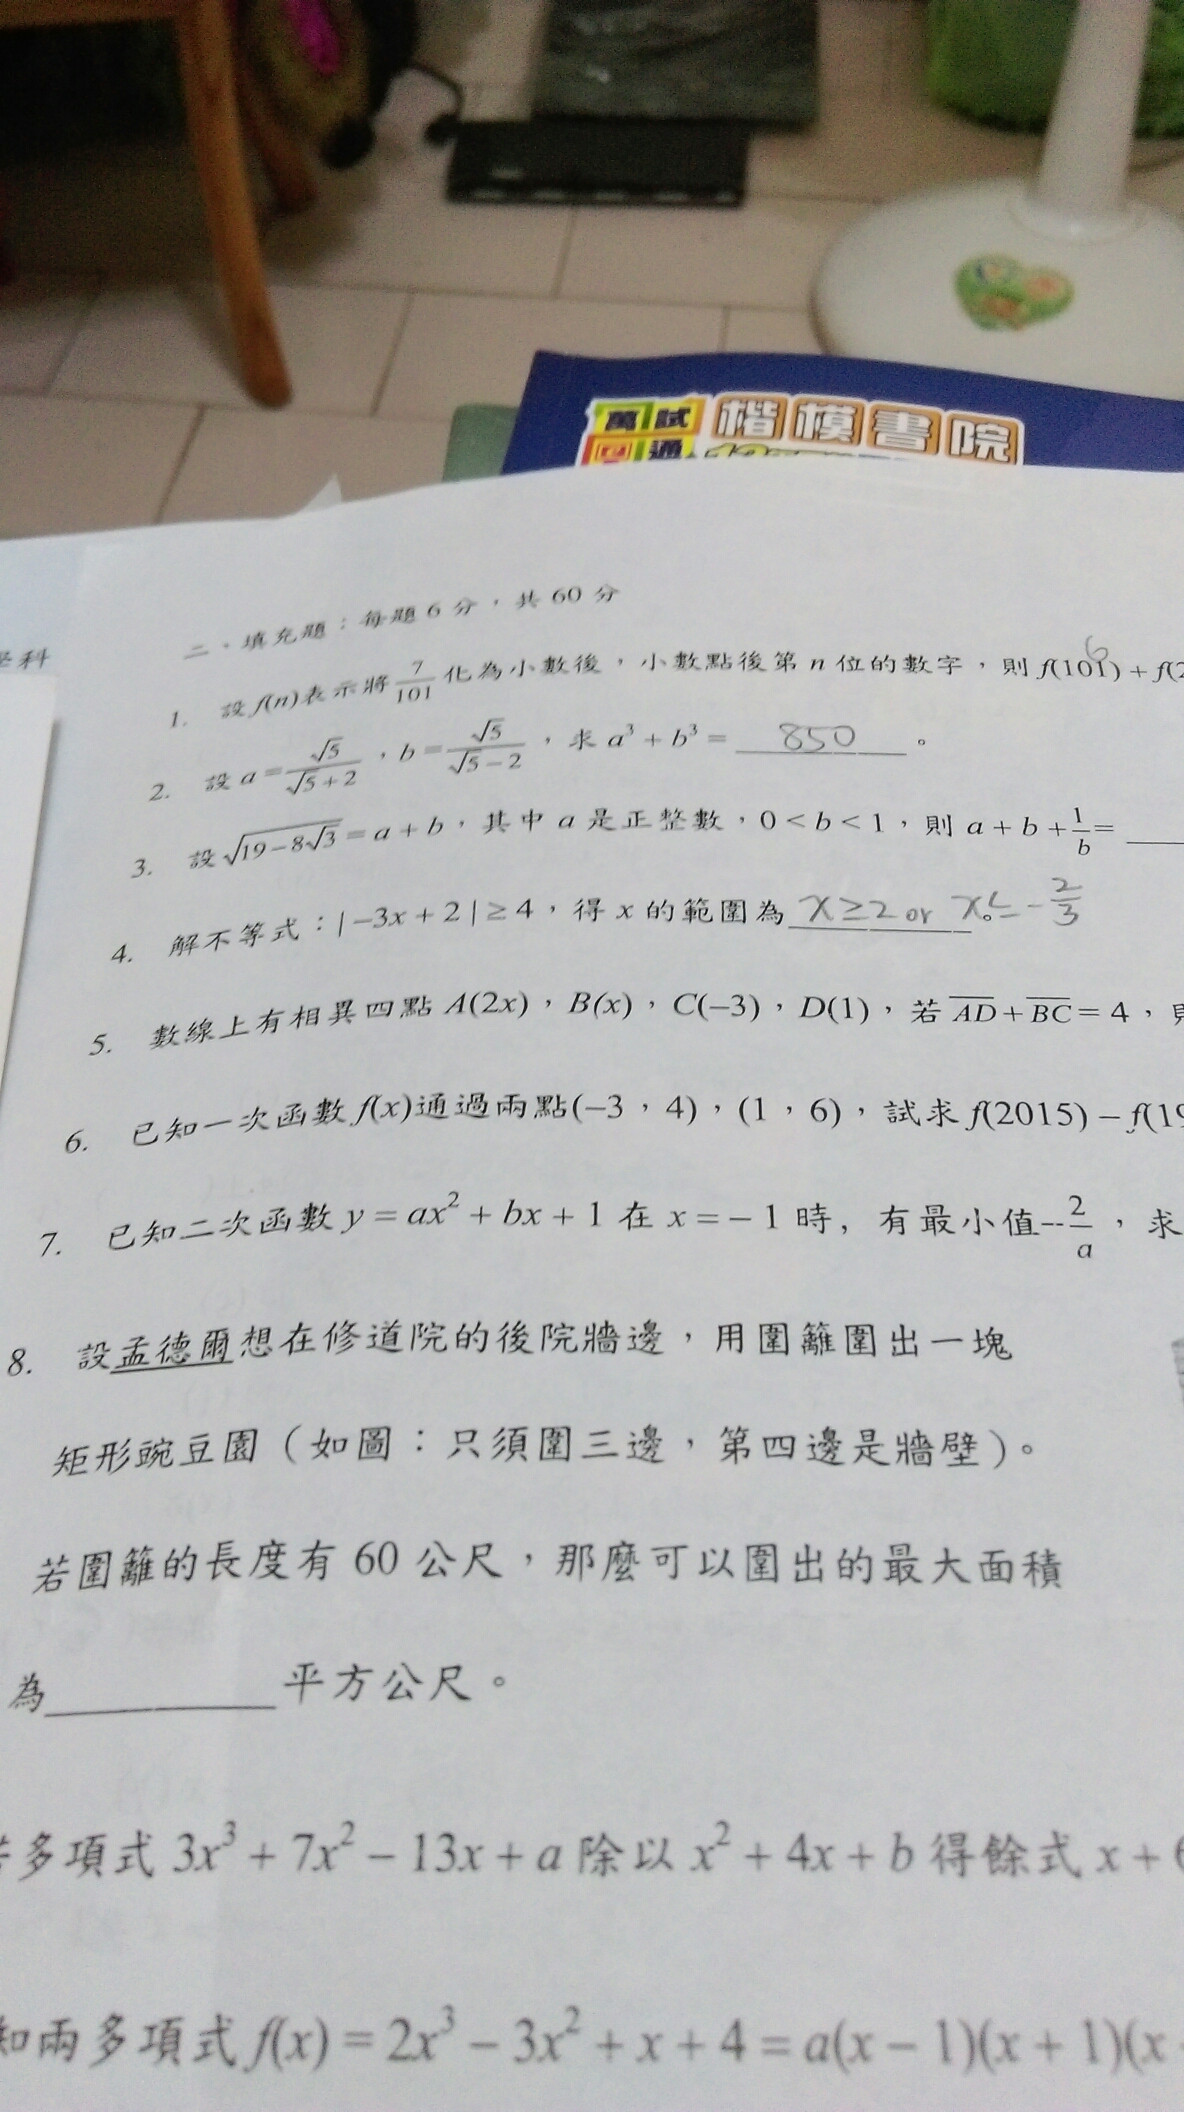 萬試
通
楷模書院
學科
二、填充題：每題 6 分，共 60 分
1. 設 f(n)表示將 7/101 化為小數後，小數點後第 n 位的數字，則 f(101) + f(2
6
2. 設 a = √5/(√5+2)，b = √5/(√5−2)，求 a³ + b³ = 850。
3. 設 √(19−8√3) = a + b，其中 a 是正整數，0 < b < 1，則 a + b + 1/b =
4. 解不等式：| −3x + 2 | ≥ 4，得 x 的範圍為 x ≥ 2 or x ≤ −2/3。
5. 數線上有相異四點 A(2x)，B(x)，C(−3)，D(1)，若 A̅D̅ + B̅C̅ = 4，
6. 已知一次函數 f(x)通過兩點(−3，4)，(1，6)，試求 f(2015) − f(19
7. 已知二次函數 y = ax² + bx + 1 在 x = − 1 時, 有最小值--2/a，求
8. 設孟德爾想在修道院的後院牆邊，用圍籬圍出一塊
矩形豌豆園（如圖：只須圍三邊，第四邊是牆壁）。
若圍籬的長度有 60 公尺，那麼可以圍出的最大面積
為________平方公尺。
多項式 3x³ + 7x² − 13x + a 除以 x² + 4x + b 得餘式 x + 6
知兩多項式 f(x) = 2x³ − 3x² + x + 4 = a(x − 1)(x + 1)(x